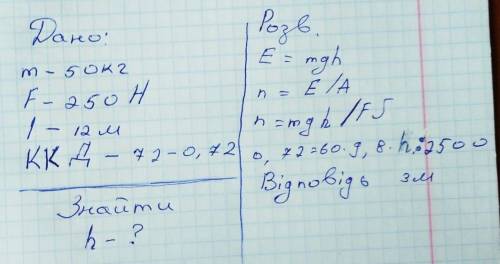 Дано:
m - 50кг
F - 250 Н
l - 12м
ККД - 72 - 0,72
Знайти
h - ?
Розв.
E = mgh
n = E/A
n = mgh/FS
0,72=60.9,8.h:2500
Відповідь 3м